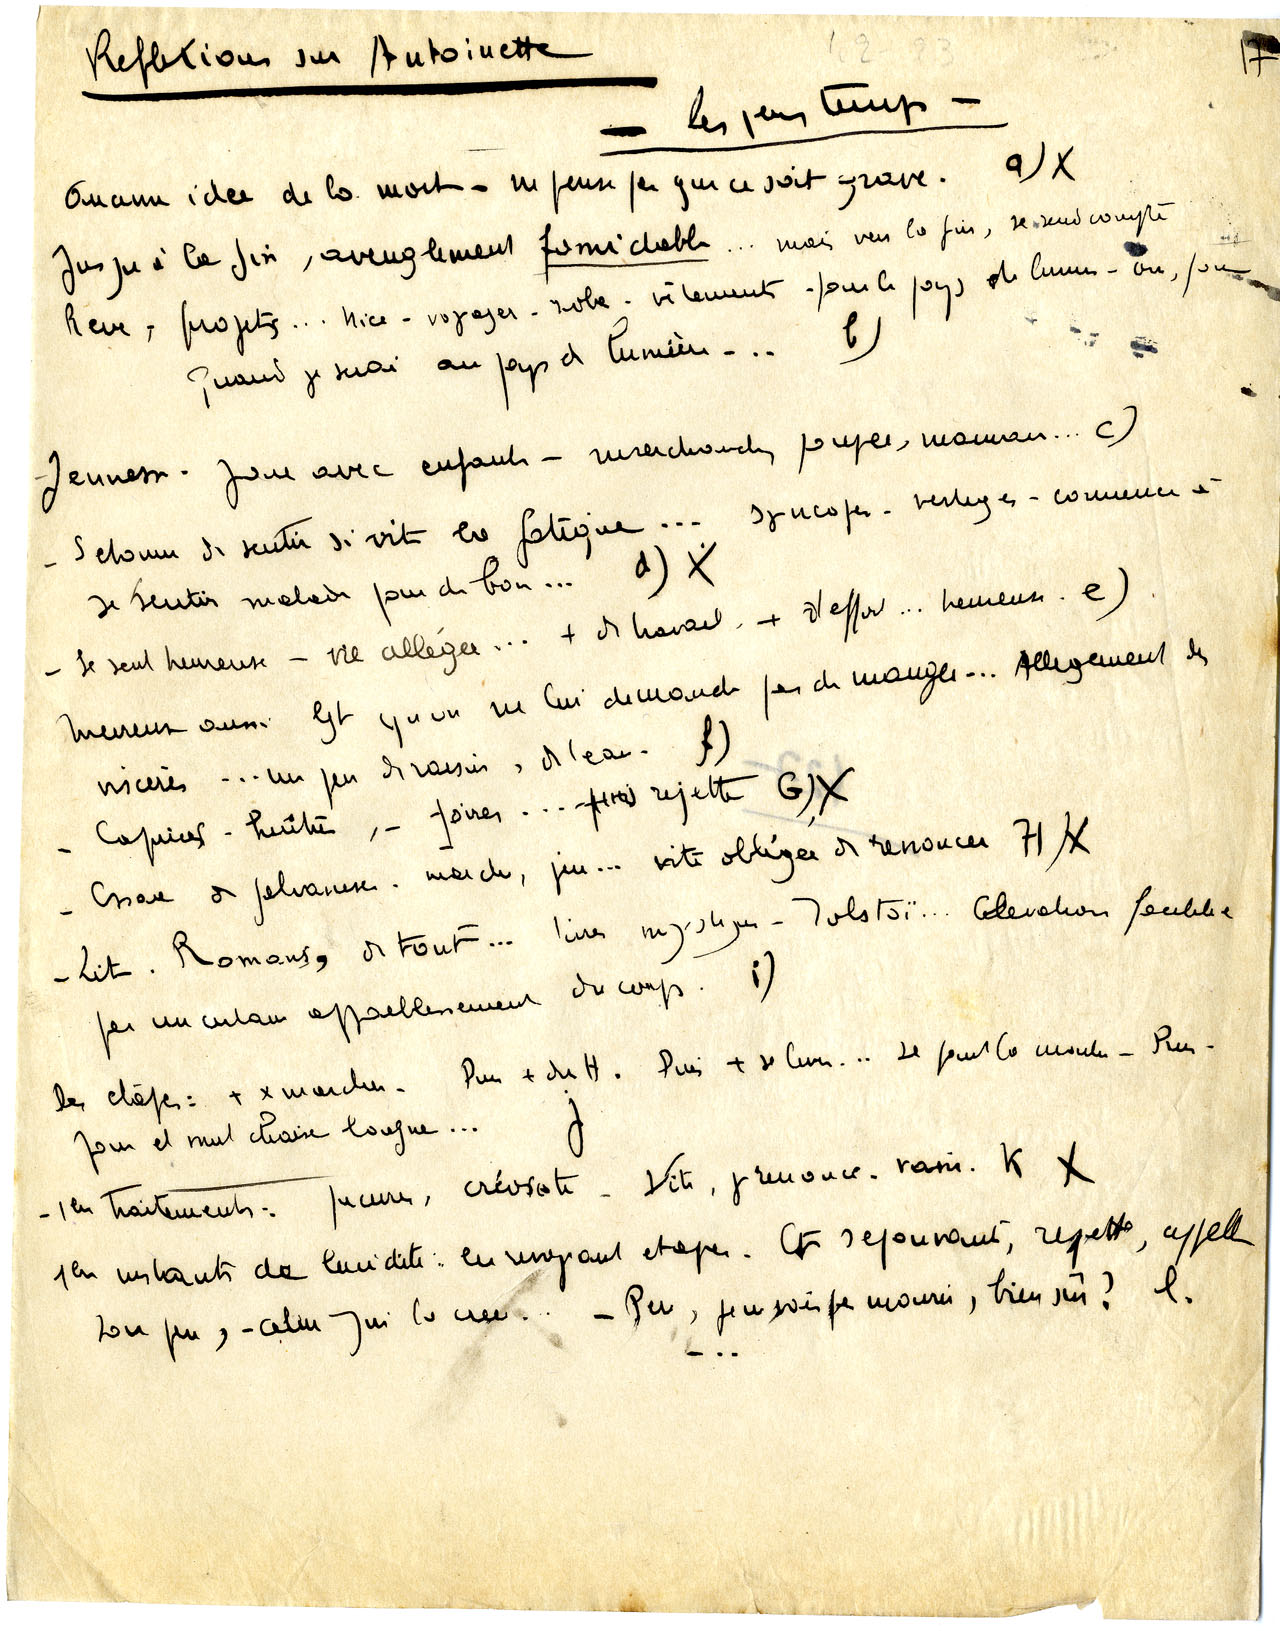 Reflexions sur Antoinette
17
- les 1ers temps -
Aucune idée de la mort - ne pense pas que ce soit grave. a) X
Jusqu'à la fin, aveuglement formidable ... mais vers la fin, se rend compte
Reve, projets... Nice - voyages - robe - vêtements - pour le pays de lumière - on,
Quand je serai au pays de lumière - .. b)
Jeunesse. Joue avec enfants - marchande, poupée, maman... c)
- S'etonne de sentir si vite la fatigue ... syncopes - vertiges - commence à
se sentir malade pour de bon ... d) X
- Se sent heureuse - vie allégée ... + de travail - + d'effort ... heureuse. e)
heureuse aussi qu'on ne lui demande pas de manger ... Allegement des
viscères ... un peu de raisin, de l'eau. f)
- Caprices - huîtres, - poires ... rejette G) X
- Essaie de . marche, jeu ... vite obligée de renoncer H) X
- Lit. Romans, de tout ... livres mystiques - Tolstoï ... Elevation
par un certain affaiblissement du corps. i)
Des étapes: + x marcher. Puis + du lit. Puis + se lever ... - Puis -
jour et nuit chaise longue ... j
- 1ers traitements: piqures, créosote - Vite, y renonce. K X
1ers instants de lucidité: en revoyant etapes. Et s'epouvante, rejette, appelle
son père, - calme la crise ... - Père, je ne vais pas mourir, bien sûr? l.
- ..